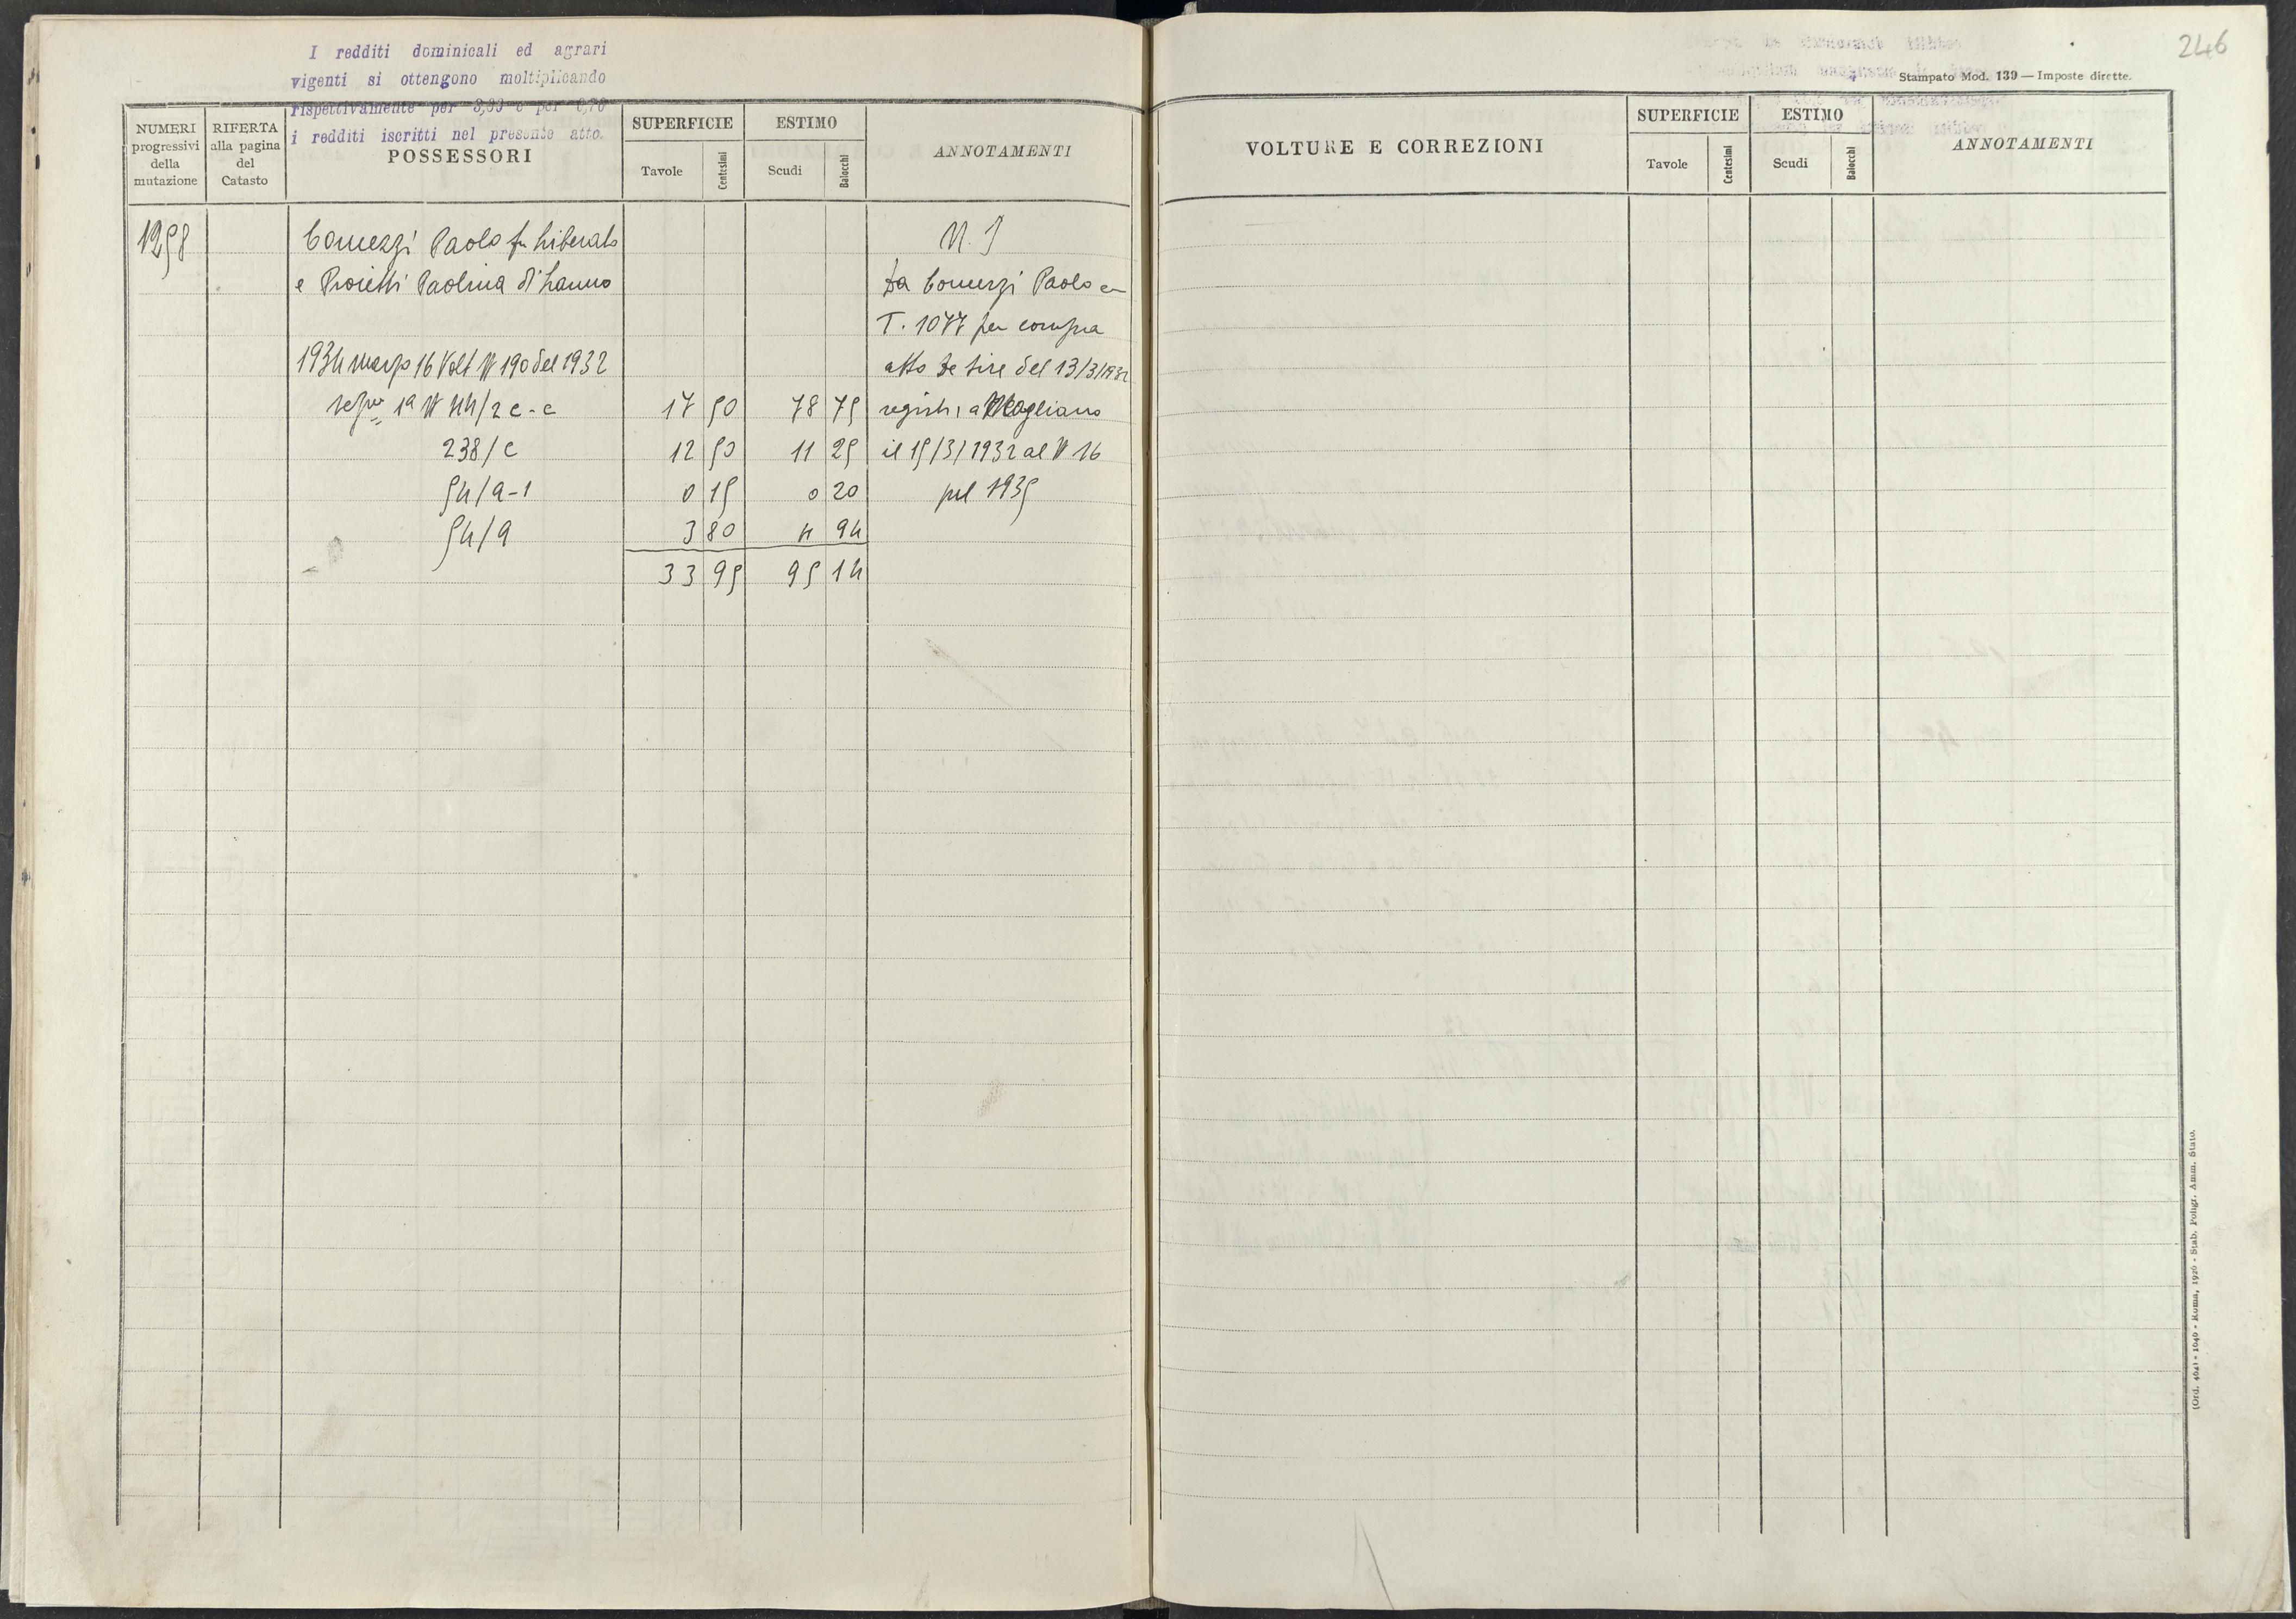 I redditi dominicali ed agrari
vigenti si ottengono moltiplicando
rispettivamente per 3,99 e per 0,70
i redditi iscritti nel presente atto.
NUMERI progressivi della mutazione
RIFERTA alla pagina del Catasto
POSSESSORI
SUPERFICIE
Tavole
Centesimi
ESTIMO
Scudi
Baiocchi
ANNOTAMENTI
1258
Comezzi Paolo fu Liberato
N. J
e Proietti Paolina di
Da Comezzi Paolo
T. 1077 per compra
1934 marzo 16 Volt N 190 del 1932
atto del 13/3/1932
1a N 44/2 c-c 17 50 78 75 a Magliano
238/c 12 50 11 25 il 15/3/1932 al N 16
54/a-1 0 15 0 20 pel 1935
54/a 3 80 4 94
33 95 95 14
246
Stampato Mod. 139 — Imposte dirette.
VOLTURE E CORREZIONI
SUPERFICIE
Tavole
Centesimi
ESTIMO
Scudi
Baiocchi
ANNOTAMENTI
(Ord. 4041 - 1040 - Roma, 1926 - Stab. Poligr. Amm. Stato.